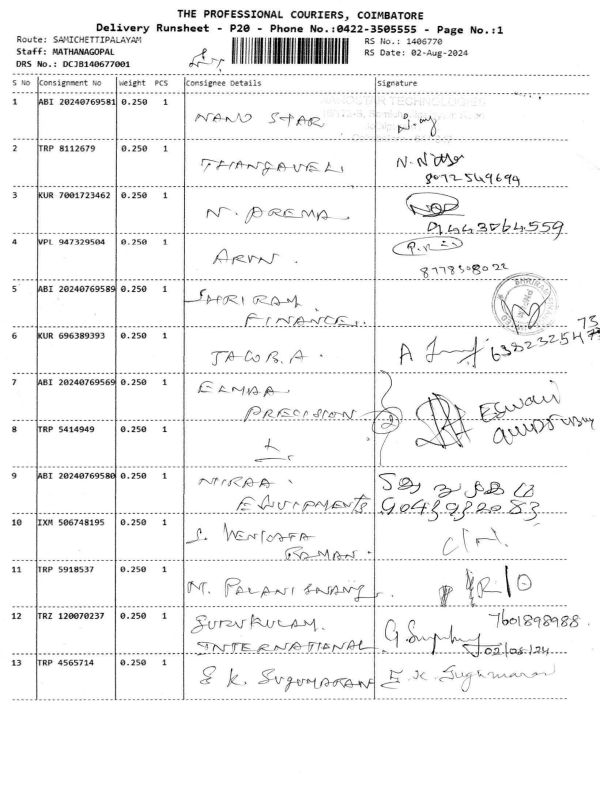 THE PROFESSIONAL COURIERS, COIMBATORE
Delivery Runsheet - P20 - Phone No.:0422-3505555 - Page No.:1
Route: SAMICHETTIPALAYAM
RS No.: 1406770
Staff: MATHANAGOPAL
RS Date: 02-Aug-2024
DRS No.: DCJB140677001
S No Consignment No Weight PCS Consignee Details Signature
1 ABI 20240769581 0.250 1 NANO STAR
2 TRP 8112679 0.250 1 THANGAVELU
8072549694
3 KUR 7001723462 0.250 1 N. PREMA
9443064559
4 VPL 947329504 0.250 1 ARUN.
8778508022
5 ABI 20240769589 0.250 1 SHRIRAM
FINANCE.
6 KUR 696389393 0.250 1 JACOB.A.
7 ABI 20240769569 0.250 1
PRECISION 2
8 TRP 5414949 0.250 1
9 ABI 20240769580 0.250 1 NIRAA
EQUIPMENTS
10 IXM 506748195 0.250 1 S. VENKATA
RAMAN.
11 TRP 5918537 0.250 1
12 TRZ 120070237 0.250 1 GURUKULAM 7601898988
INTERNATIONAL 02/08/24
13 TRP 4565714 0.250 1 E K. SUGUMARAN E. K. Sugumaran